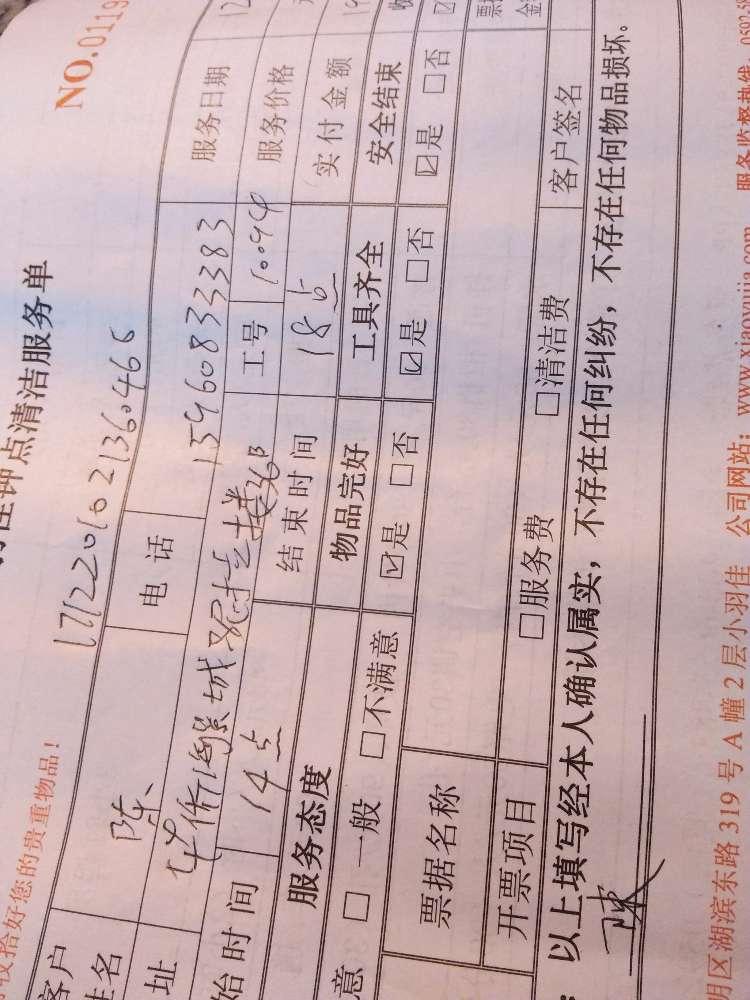 钟点清洁服务单
收拾好您的贵重物品！
NO.01195
17122010213604
客户姓名 陈 电话 15960833383 服务日期 12
址 工号 10094 服务价格
始时间 14点 结束时间 18点 实付金额
服务态度 物品完好 工具齐全 安全结束
意 □一般 □不满意 ☑是 □否 ☑是 □否 ☑是 □否
票据名称
开票项目 □服务费 □清洁费 客户签名
以上填写经本人确认属实，不存在任何纠纷，不存在任何物品损坏。
陈
明区湖滨东路319号A幢2层小羽佳 公司网站：www.xiaoyujia.com 服务监督热线：0592-